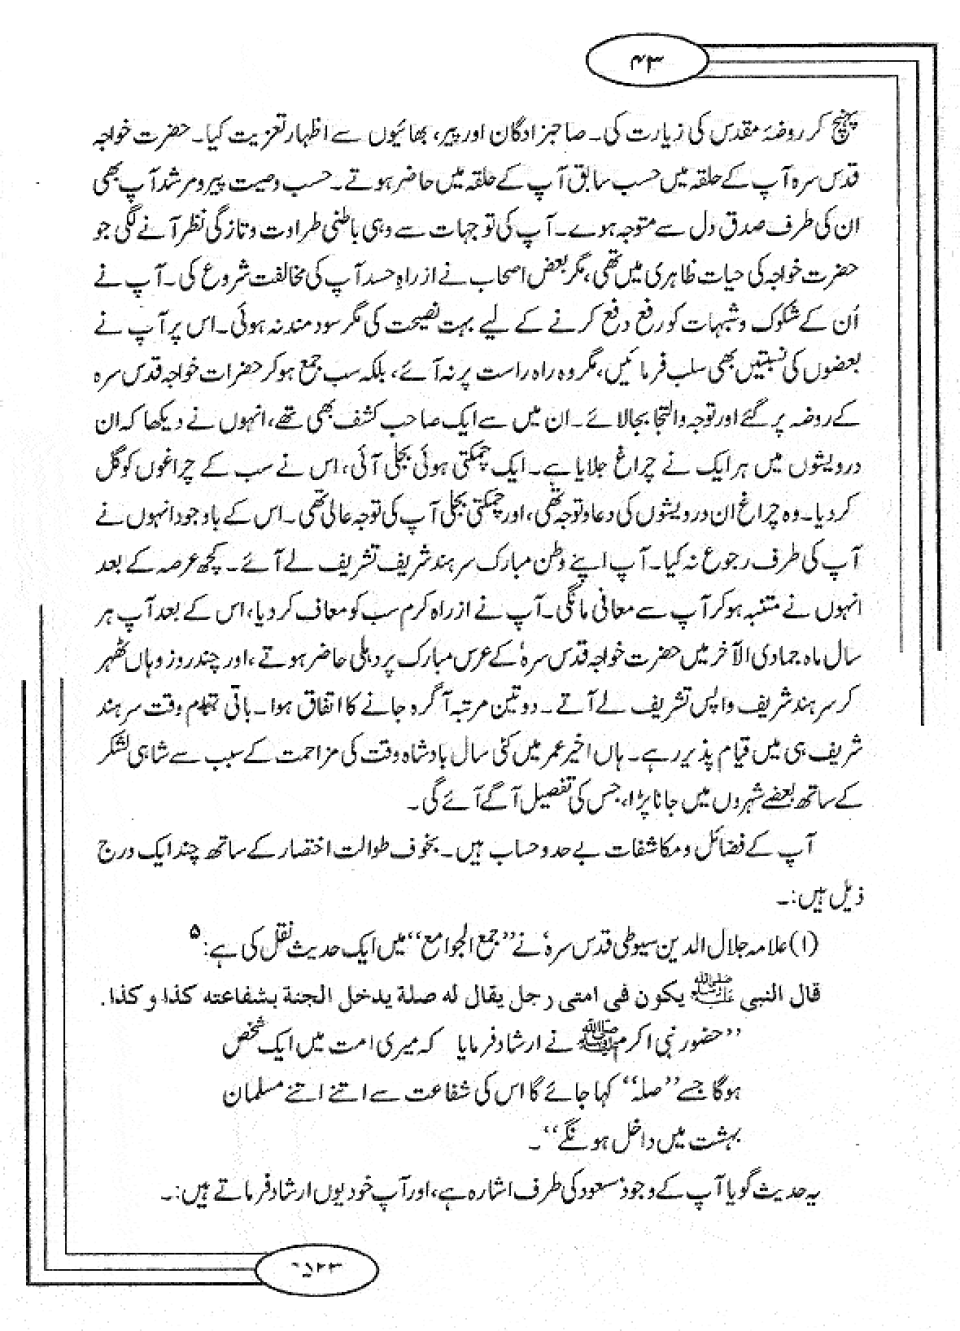 ۴۳
پہنچ کر روضۂ مقدس کی زیارت کی۔ صاحبزادگان اور پیر، بھائیوں سے اظہار تعزیت کیا۔ حضرت خواجہ
قدس سرہ آپ کے حلقہ میں حسب سابق آپ کے حلقہ میں حاضر ہوتے۔ حسب وصیت پیر و مرشد آپ بھی
ان کی طرف صدق دل سے متوجہ ہوے۔ آپ کی توجہات سے وہی باطنی طراوت و تازگی نظر آنے لگی جو
حضرت خواجہ کی حیات ظاہری میں تھی، مگر بعض اصحاب نے از راہِ حسد آپ کی مخالفت شروع کی۔ آپ نے
اُن کے شکوک و شبہات کو رفع دفع کرنے کے لیے بہت نصیحت کی مگر سود مند نہ ہوئی۔ اس پر آپ نے
بعضوں کی نسبتیں بھی سلب فرمائیں، مگر وہ راہ راست پر نہ آئے، بلکہ سب جمع ہو کر حضرات خواجہ قدس سرہ
کے روضہ پر گئے اور توجہ و التجا بجا لائے۔ ان میں سے ایک صاحب کشف بھی تھے، انہوں نے دیکھا کہ ان
درویشوں میں ہر ایک نے چراغ جلایا ہے۔ ایک چمکتی ہوئی بجلی آئی، اس نے سب کے چراغوں کو گل
کر دیا۔ وہ چراغ ان درویشوں کی دعا و توجہ تھی، اور چمکتی بجلی آپ کی توجہ عالی تھی۔ اس کے باوجود انہوں نے
آپ کی طرف رجوع نہ کیا۔ آپ اپنے وطن مبارک سرہند شریف تشریف لے آئے۔ کچھ عرصہ کے بعد
انہوں نے متنبہ ہو کر آپ سے معافی مانگی۔ آپ نے از راہ کرم سب کو معاف کر دیا، اس کے بعد آپ ہر
سال ماہ جمادی الآخر میں حضرت خواجہ قدس سرہٗ کے عرس مبارک پر دہلی حاضر ہوتے، اور چند روز وہاں ٹھہر
کر سرہند شریف واپس تشریف لے آتے۔ دو تین مرتبہ آگرہ جانے کا اتفاق ہوا۔ باقی تمام وقت سرہند
شریف ہی میں قیام پذیر رہے۔ ہاں اخیر عمر میں کئی سال بادشاہ وقت کی مزاحمت کے سبب سے شاہی لشکر
کے ساتھ بعضے شہروں میں جانا پڑا، جس کی تفصیل آگے آئے گی۔
آپ کے فضائل و مکاشفات بے حد و حساب ہیں۔ بخوف طوالت اختصار کے ساتھ چند ایک درج
ذیل ہیں:۔
(۱) علامہ جلال الدین سیوطی قدس سرہٗ نے ’’جمع الجوامع‘‘ میں ایک حدیث نقل کی ہے: ۵
قال النبی ﷺ یکون فی امتی رجل یقال له صلة یدخل الجنة بشفاعته کذا و کذا.
’’حضور نبی اکرم ﷺ نے ارشاد فرمایا کہ میری امت میں ایک شخص
ہوگا جسے ’’صلہ‘‘ کہا جائے گا اس کی شفاعت سے اتنے اتنے مسلمان
بہشت میں داخل ہونگے‘‘۔
یہ حدیث گویا آپ کے وجود مسعود کی طرف اشارہ ہے، اور آپ خود یوں ارشاد فرماتے ہیں:۔